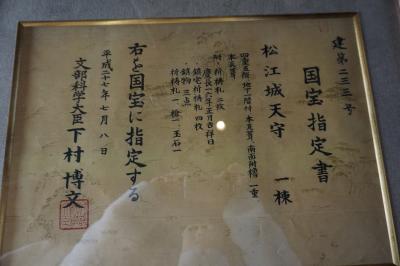 建第二三三号
国宝指定書
松江城天守 一棟
四重五階地下一階付 本瓦葺 南面附櫓一重
本瓦葺
附・祈祷札 二枚
慶長十六年正月吉祥日
鎮宅祈祷札 四枚
鎮物 三点
祈祷札一 槍一 玉石一
右を国宝に指定する
平成二十七年七月八日
文部科学大臣 下村博文